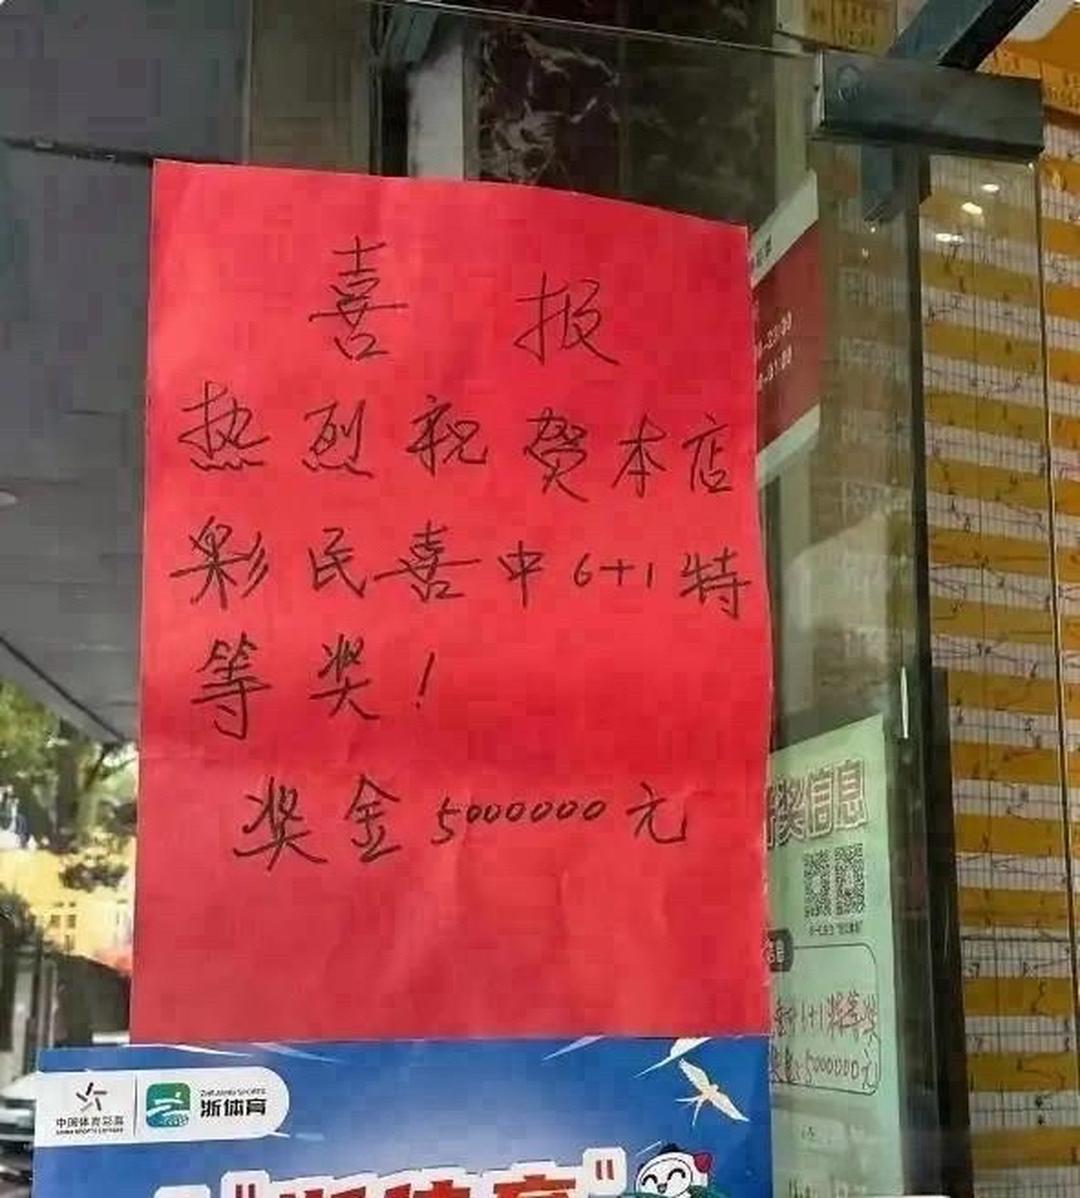 喜报
热烈祝贺本店
彩民喜中6+1特
等奖!
奖金5000000元
奖信息
喜中6+1特等奖
5000000元
中国体育彩票
CHINA SPORTS LOTTERY
ZHEJIANG SPORTS
浙体育